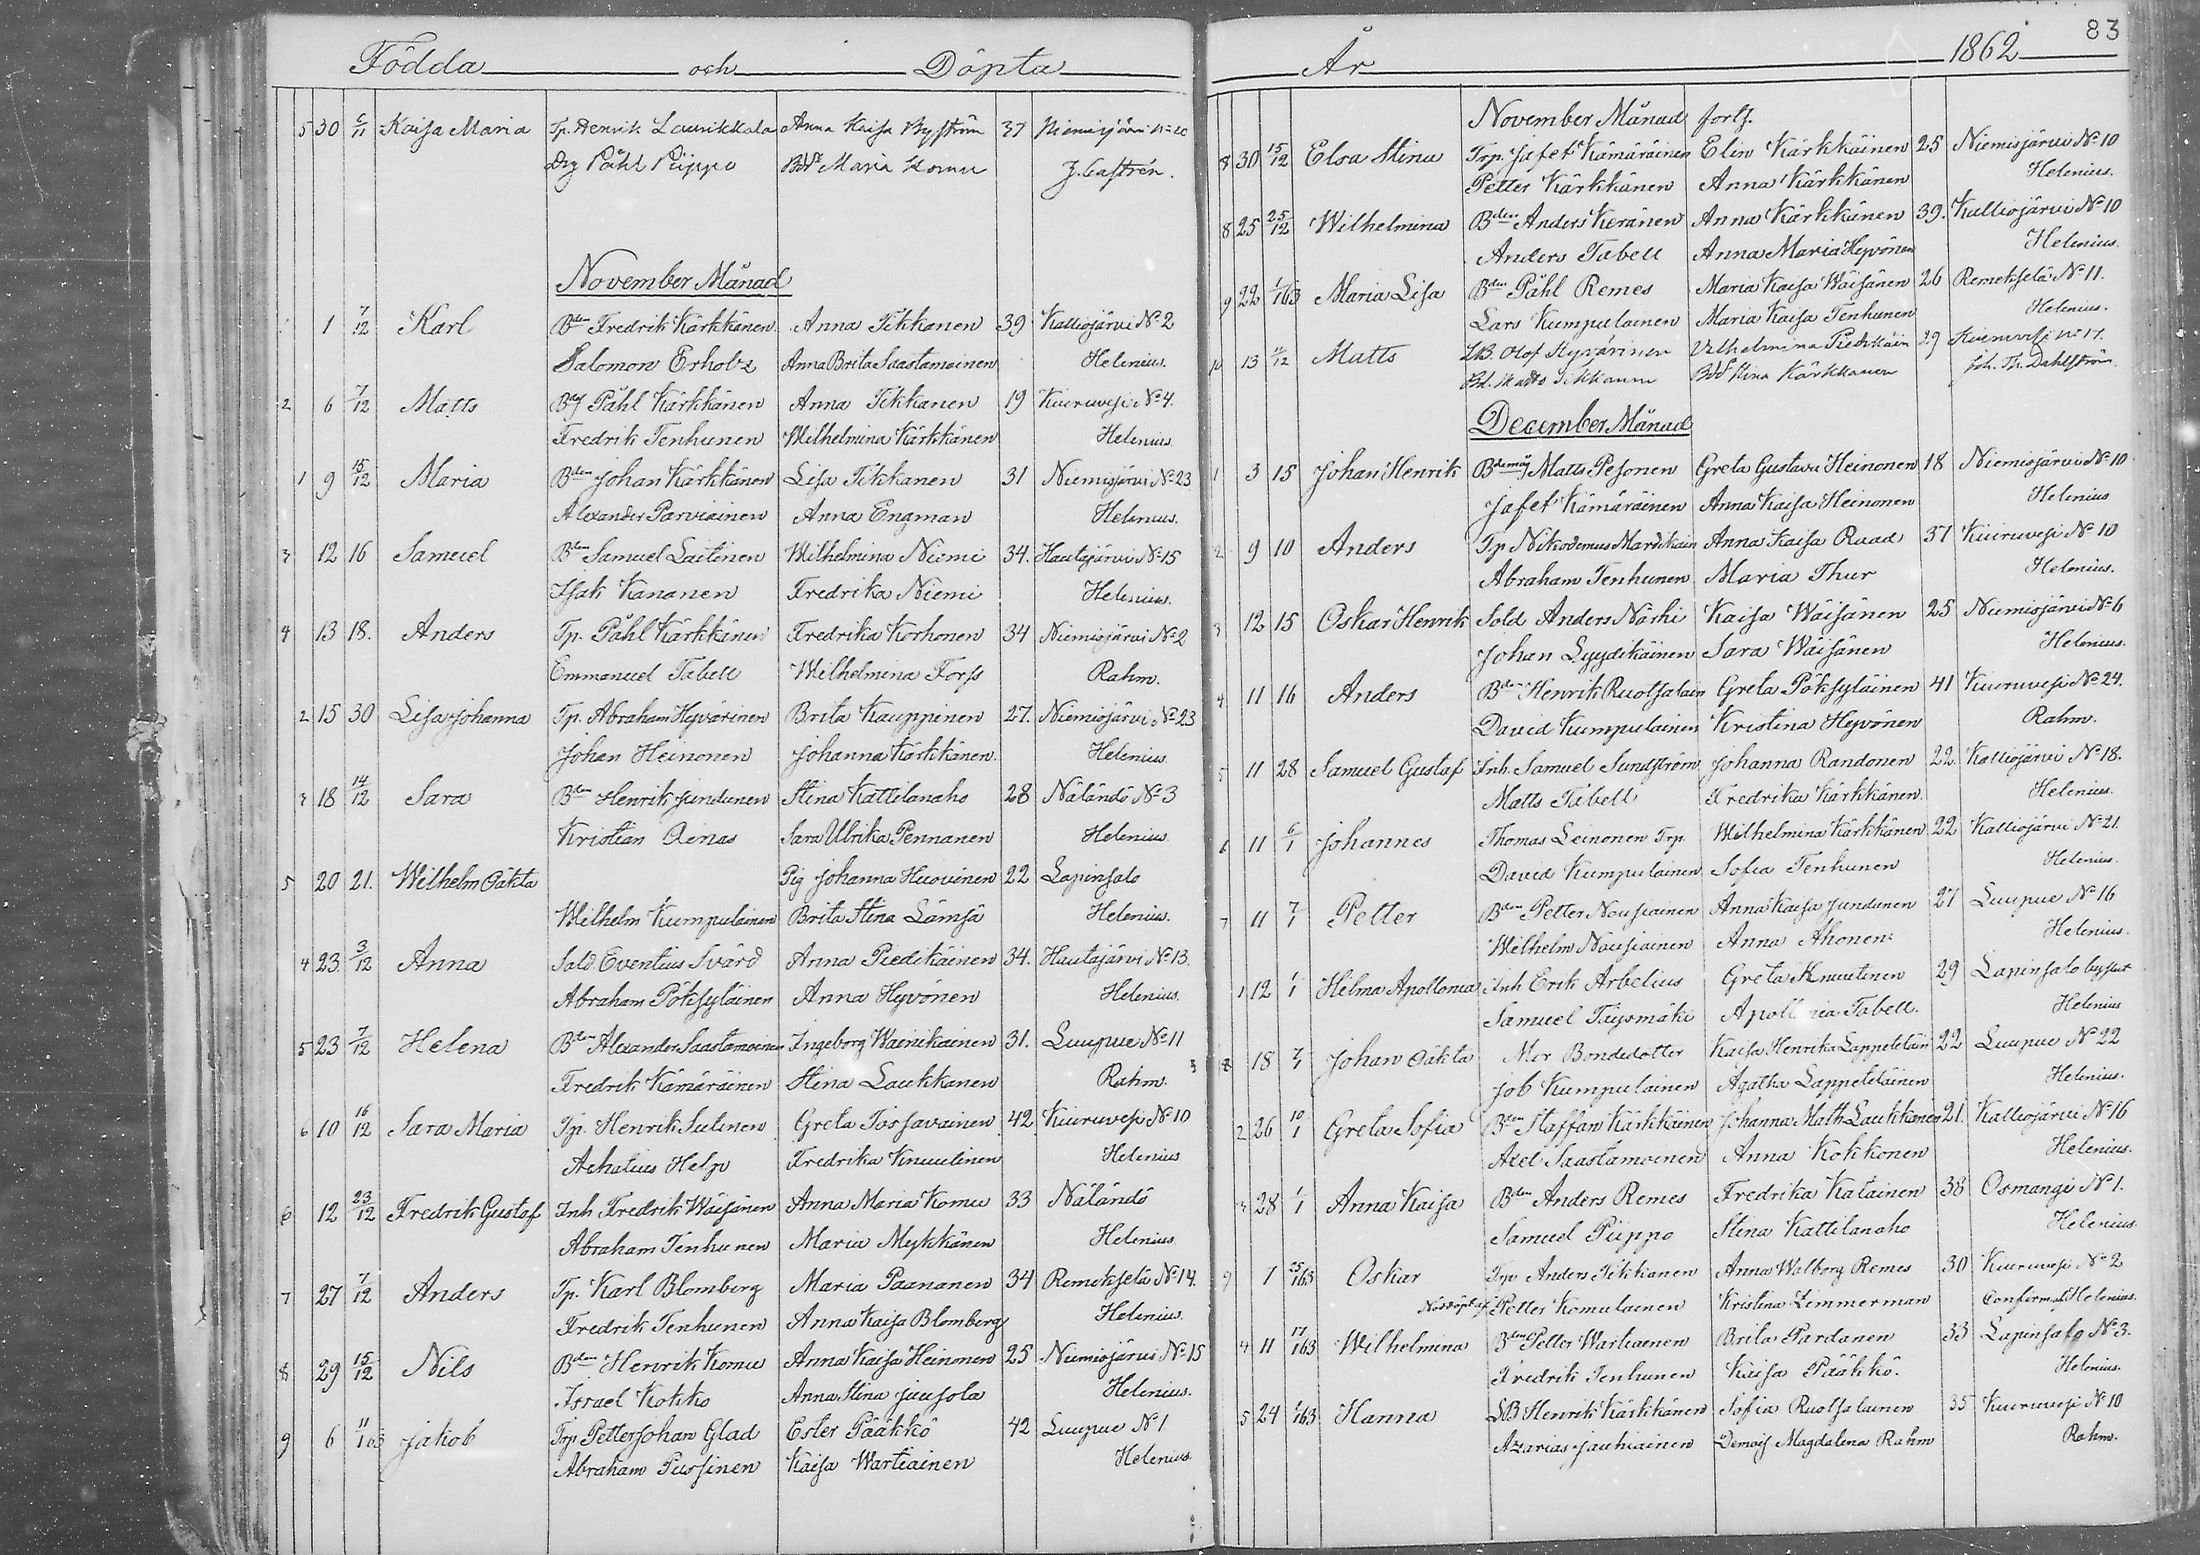 Födda och Döpta
5 30 6/11 Kaisa Maria Tp. Henrik Laurikkala Anna Kaisa Byström 37 Niemisjärvi No 20
Drg Påhl Piippo Maria Komu J. Castrén.
November Månad
1 7/12 Karl Bden Fredrik Kärkkänen Anna Tikkanen 39 Kalliojärvi No 2
Salomon Erholz Anna Brita Saastamoinen Helenius.
2 6 7/12 Matts Påhl Kärkkänen Anna Tikkanen 19 Kiuruvesi No 4.
Fredrik Tenhunen Wilhelmina Kärkkänen Helenius
1 9 15/12 Maria Bden Johan Kärkkänen Lisa Tikkanen 31 Niemisjärvi No 23
Alexander Parviainen Anna Engman Helenius.
3 12 16 Samuel Bden Samuel Laitinen Wilhelmina Niemi 34. Hautajärvi No 15
Isak Kananen Fredrika Niemi Helenius.
4 13 18. Anders Tp. Påhl Kärkkänen Fredrika Korhonen 34 Niemisjärvi No 2
Emmanuel Tabell Wilhelmina Forss Rahm.
2 15 30 Lisa Johanna Tp. Abraham Hyvärinen Brita Kauppinen 27. Niemisjärvi No 23
Johan Heinonen Johanna Kärkkänen. Helenius
3 18 14/12 Sara Bden Henrik Jundunen Stina Kattilanaho 28 Näländö No 3
Kristian Aenas Sara Ulrika Pennanen Helenius
5 20 21. Wilhelm Oäkta Pig Johanna Huovinen 22 Lapinsalo
Wilhelm Kumpulainen Brita Stina Lämsä Helenius.
4 23 3/12 Anna Sold Eventius Svärd Anna Piedikäinen 34. Hautajärvi No 13.
Abraham Pöksyläinen Anna Hyvönen Helenius.
5 23 7/12 Helena Bden Alexander Saastamoinen Ingeborg Wainikainen 31. Luupue No 11
Fredrik Kämäräinen Stina Laukkanen Rahm.
6 10 16/12 Sara Maria Tp. Henrik Sutinen Greta Tossavainen 42 Kiuruvesi No 10
Achatius Help Fredrika Knuutinen Helenius
6 12 23/12 Fredrik Gustaf Inh Fredrik Wäisänen Anna Maria Komu 33 Näländö
Abraham Tenhunen Maria Mykkänen Helenius
7 27 7/12 Anders Tp. Karl Blomberg Maria Paananen 34 Remekselä No 14.
Fredrik Tenhunen Anna Kaisa Blomberg Helenius.
8 29 15/12 Nils Bden Henrik Komu Anna Kaisa Heinonen 25 Niemisjärvi No 15
Israel Kokko Anna Stina Juusola Helenius.
9 6 11/1 63 Jakob Trp Petter Johan Glad Ester Pääkkö 42 Luupue No 1
Abraham Pursinen Kaisa Wartiainen Helenius.
83
År 1862
November Månad forts.
8 30 15/12 Elsa Stina Trp. Jafet Kämäräinen Elin Kärkkäinen 25 Niemisjärvi No 10
Petter Kärkkänen Anna Kärkkänen Helenius.
8 25 25/12 Wilhelmina Bden Anders Keränen Anna Kärkkänen 39. Kalliojärvi No 10
Anders Tabell Anna Maria Hyvönen Helenius.
9 22 1/1 63 Maria Lisa Bden Påhl Remes Maria Kaisa Wäisänen 26 Remekselä No 11.
Lars Kumpulainen Maria Kaisa Tenhunen Helenius.
10 13 11/12 Matts LB. Olof Hyvärinen Vilhelmina Piedikäin 29 Kiuruvesi No 17.
Bd. Matts Tikkanen Stina Kärkkänen Joh. Th. Dahlström.
December Månad
1 3 15 Johan Henrik Matts Pesonen Greta Gustava Heinonen 18 Niemisjärvi No 10
Jafet Kämäräinen Anna Kaisa Heinonen Helenius
2 9 10 Anders Tp Nikodemus Mardikain Anna Kaisa Ruad 37 Kiuruvesi No 10
Abraham Tenhunen Maria Thur Helenius.
3 12 15 Oskar Henrik Sold Anders Närhi Kaisa Wäisänen 25 Niemisjärvi No 6
Johan Lyydikäinen Sara Wäisänen Helenius.
4 11 16 Anders Bden Henrik Ruotsalain Greta Pöksyläinen 41 Kiuruvesi No 24.
David Kumpulainen Kristina Hyvönen Rahm.
5 11 28 Samuel Gustaf Inh. Samuel Sundström Johanna Randonen 22. Kalliojärvi No 18.
Matts Tabell Fredrika Kärkkänen. Helenius.
6 11 6/1 Johannes Thomas Leinonen Trp Wilhelmina Kärkkänen 22 Kalliojärvi No 21.
David Kumpulainen Sofia Tenhunen Helenius.
7 11 7/1 Petter Bden Petter Nousiainen Anna Kaisa Jundunen 27 Luupue No 16
Wilhelm Nousiainen Anna Ahonen Helenius.
1 12 1/1 Helma Apollonia Inh Erik Arbelius Greta Knuutinen 29 Lapinsalo
Samuel Täysmäki Apollonia Tabell. Helenius
8 18 7/1 Johan Oäkta Mor Bondedotter Kaisa Henrika Lappeteläin 22 Luupue No 22
Job Kumpulainen Agatha Lappeteläinen Helenius.
2 26 10/1 Greta Sofia Bden Staffan Kärkkäinen Johanna Math. Laukkanen 21. Kalliojärvi No 16
Axel Saastamoinen Anna Kokkonen Helenius.
3 28 1/1 Anna Kaisa Bden Anders Remes Fredrika Katainen 38 Osmangi No 1.
Samuel Piippo Stina Kattilanaho Helenius.
9 1 25/1 63 Oskar Trp Anders Tikkanen Anna Walborg Remes 30 Kiuruvesi No 2
Nöddöpt af Petter Komulainen Kristina Zimmerman Conferm af Helenius.
4 11 17/1 63 Wilhelmina Bden Petter Wartiaenen Brita Pardanen 33 Lapinsalo No 3.
Fredrik Tenhunen Kaisa Pääkkö. Helenius.
5 24 1/1 63 Hanna LB Henrik Kärkkänen Sofia Ruotsalainen 35 Kiuruvesi No 10
Azarias Jauhiainen Demois Magdalena Rahm Rahm.